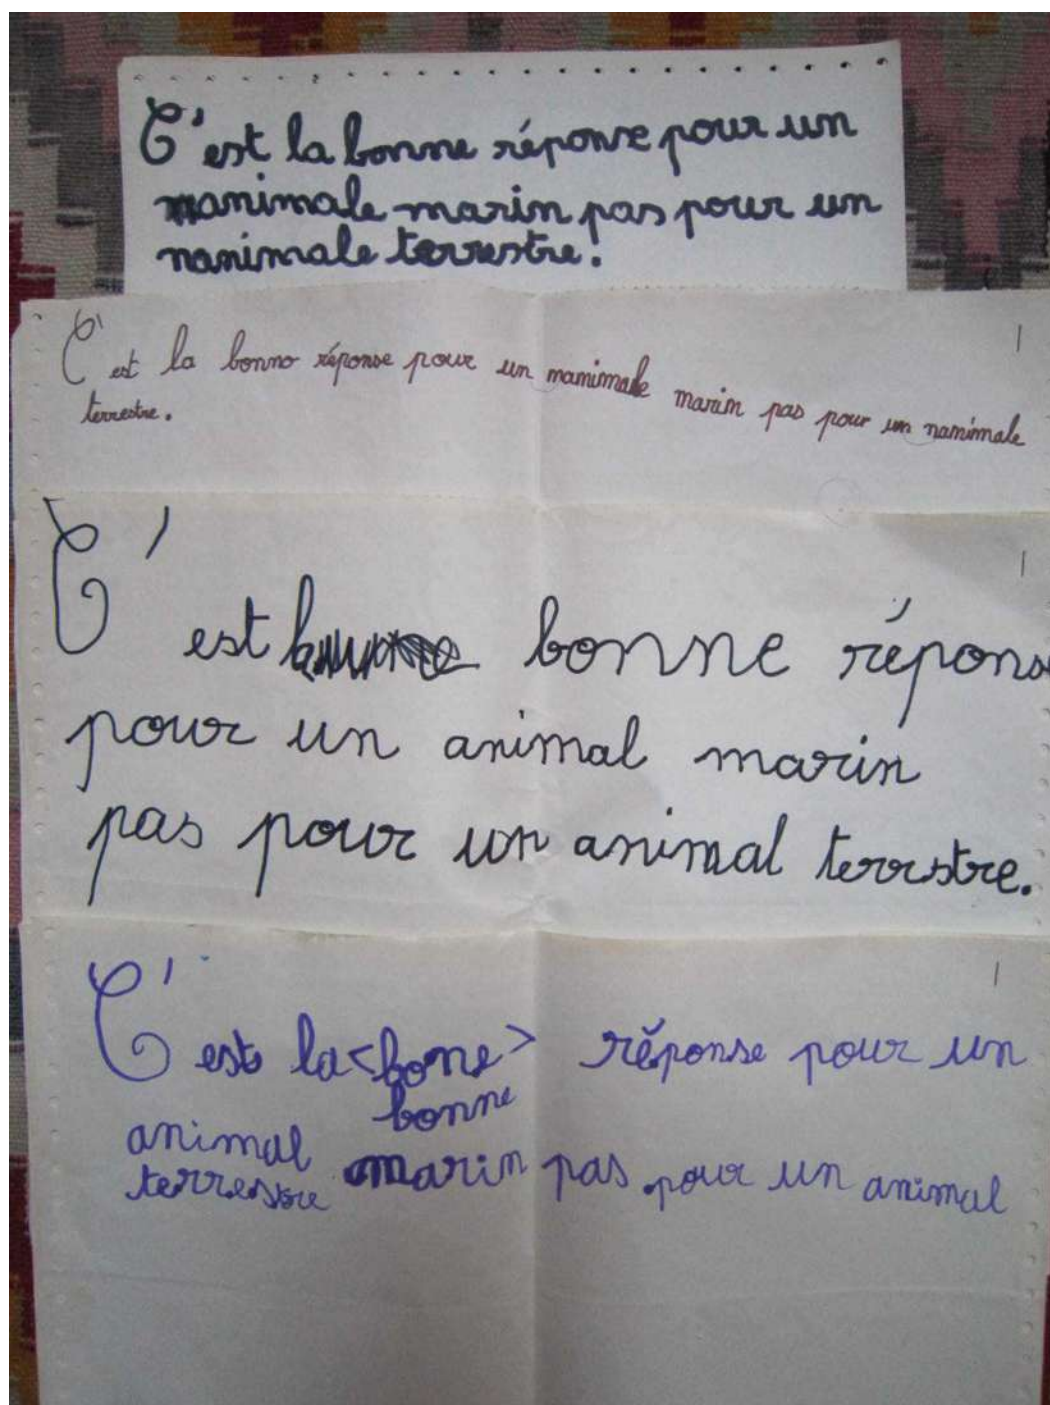 C'est la bonne réponse pour un
nanimale marin pas pour un
nanimale terrestre.
C'est la bonne réponse pour un manimale marin pas pour un nanimale
terrestre.
C'est bonne répons
pour un animal marin
pas pour un animal terrstre.
C'est la <bone> réponse pour un
bonne
animal marin pas pour un animal
terrestre